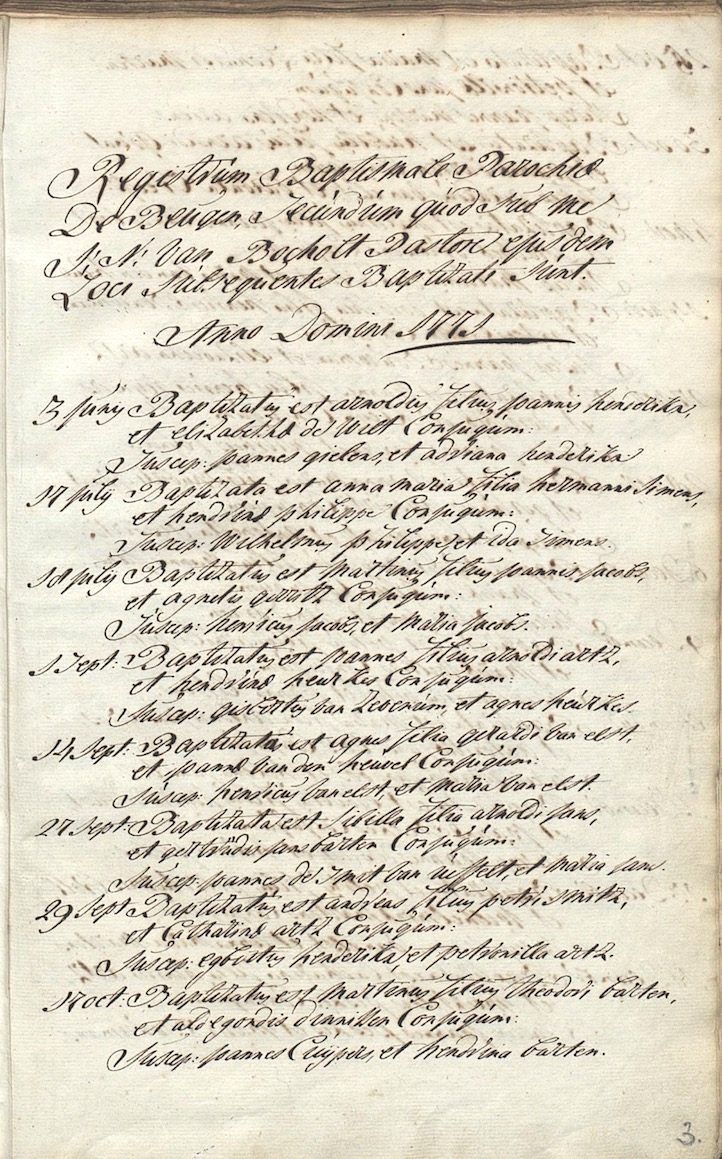 Registrum Baptismale Parochiæ
De Beugen, Secundum quod Sub me
J: N: Van Bocholt Pastore ejusdem
Loci Subsequentes Baptizati Sunt.
Anno Domini 1771
3 junij Baptizatus est arnoldus filius joannis henderikx,
et elizabethæ de Wilt Conjugum:
Suscep: joannes gielens, et adriana henderikx
17 july Baptizata est anna maria filia hermanni Simens,
et hendrinæ philippe Conjugum:
Suscep: Wilhelmus philippe, et ida Simens.
18 july Baptizatus est Martinus filius joannis jacobs,
et agnetis gerritz Conjugum:
Suscep: henricus jacobs, et Maria jacobs.
1 Sept: Baptizatus est joannes filius arnoldi artz,
et hendrinæ heurkes Conjugum:
Suscep: gisbertus van Zevenum, et agnes heurkes
14 Sept: Baptizata est agnes filia gerardi van elst,
et joannæ van den heuvel Conjugum:
Suscep: henricus van elst, et Maria van elst.
27 Sept: Baptizata est Sibilla filia arnoldi jans,
et gertrudis jans barten Conjugum:
Suscep: joannes de Smit van uffelt, et Maria jans.
29 Sept Baptizatus est andreas filius petri Smitz,
et Catharinæ artz Conjugum:
Suscep: egbertus henderikx, et petronilla artz.
17 oct: Baptizatus est Martinus filius theodori barten,
et aldegondis dinnissen Conjugum:
Suscep: joannes Cuijpers, et hendrina barten.
3.